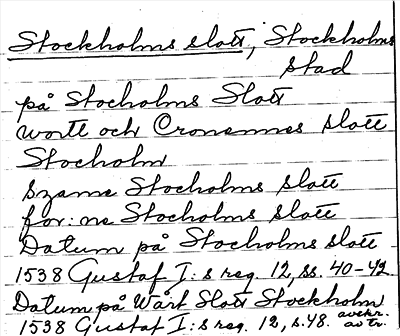 Stockholms slott, Stockholms
stad
på Stocholms Slott
wortt och Cronennes slott
Stocholm
Szame Stocholms slott
for: ne Stocholms slott
Datum på Stocholms slott
1538 Gustaf I: s reg. 12, ss. 40-42
Datum på Wårt Slott Stocholms
avskr.
1538 Gustaf I: s reg. 12, s. 48. av tr.